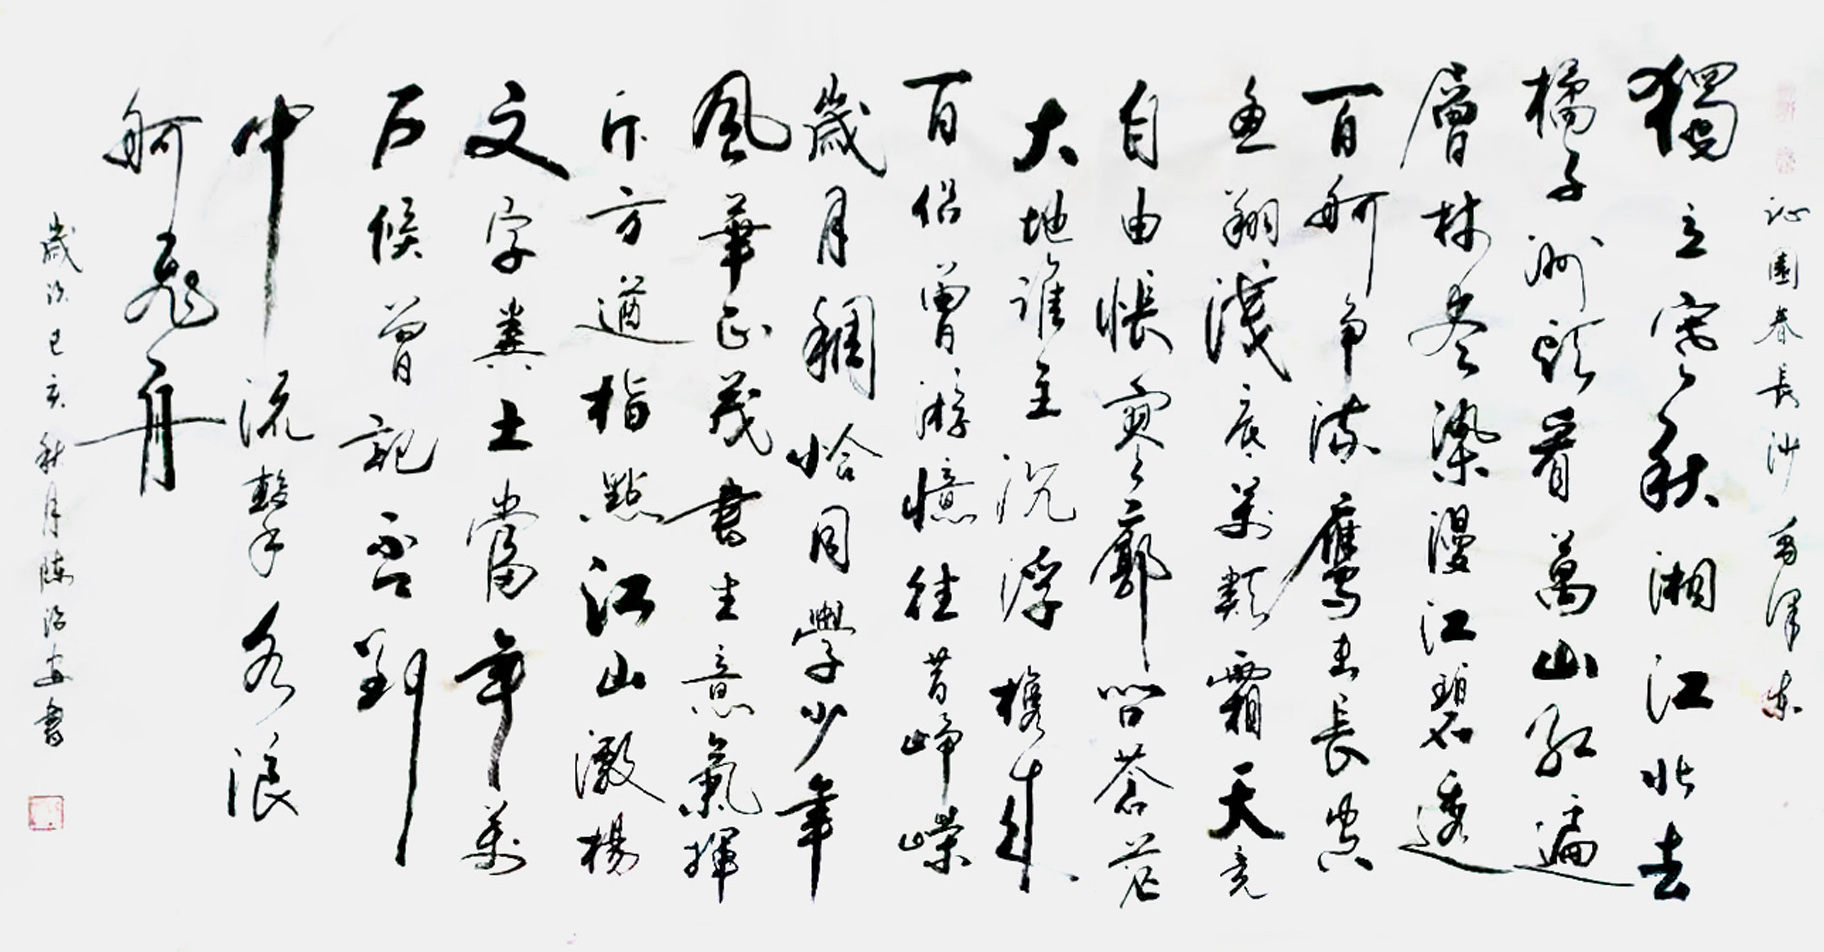 沁園春長沙 毛澤東
獨立寒秋湘江北去
橘子洲頭看萬山紅遍
層林尽染漫江碧透
百舸争流鷹击長空
鱼翔淺底万類霜天竞
自由悵寥廓問蒼茫
大地誰主沉浮攜来
百侣曾游憶往昔崢嶸
歲月稠恰同學少年
風華正茂書生意氣揮
斥方遒指點江山激楊
文字糞土當年万
户候曾記否到
中流擊水浪
舸飛舟
歲次己亥秋月陳治安書